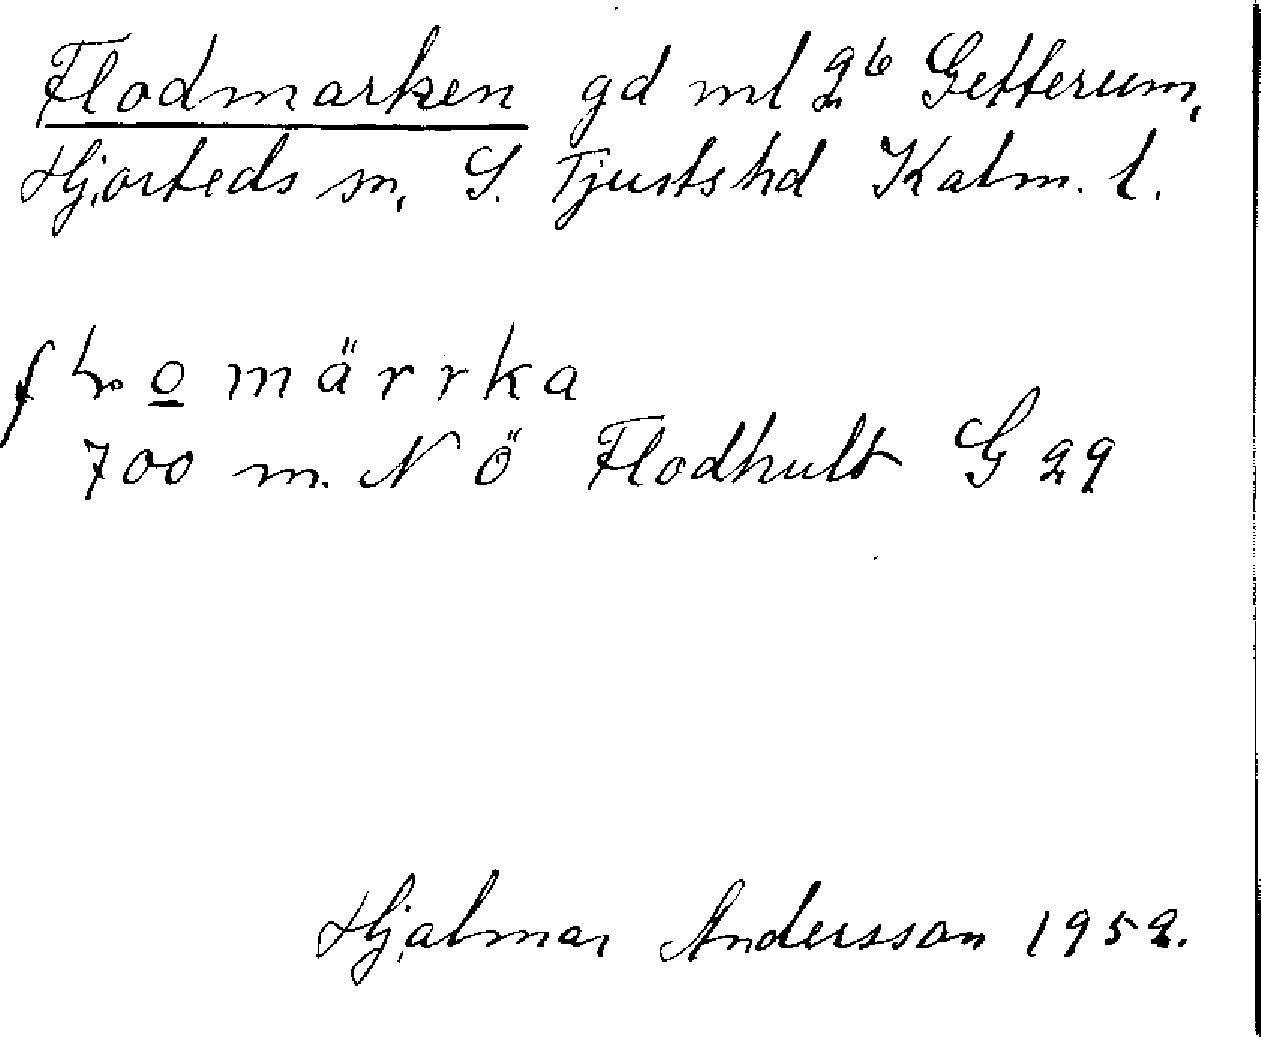 Flodmarken gd ml 2⁶ Getterum,
Hjorteds sn, S. Tjusts hd Kalm. l.
o märrka
700 m. N Ö Flodhult G 29
Hjalmar Andersson 1952.